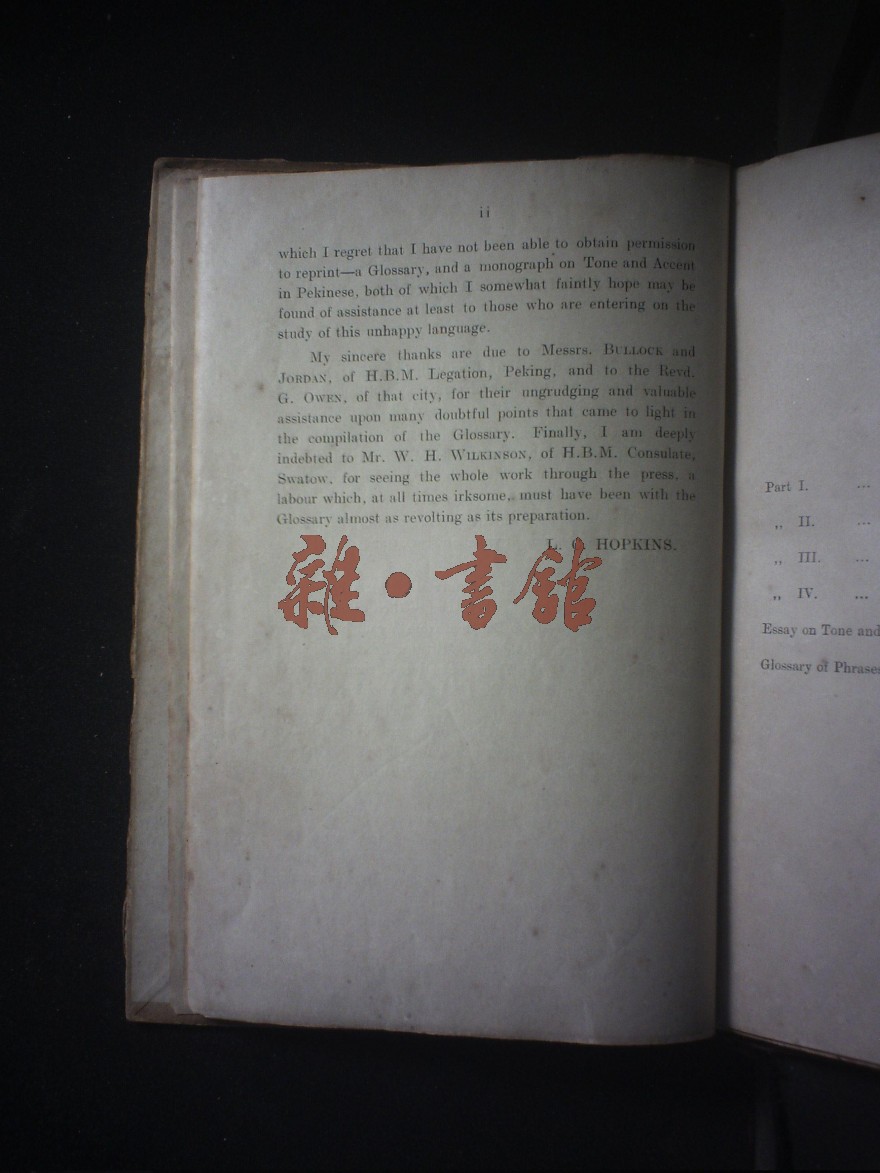 ii
which I regret that I have not been able to obtain permission
to reprint—a Glossary, and a monograph on Tone and Accent
in Pekinese, both of which I somewhat faintly hope may be
found of assistance at least to those who are entering on the
study of this unhappy language.
My sincere thanks are due to Messrs. BULLOCK and
JORDAN, of H.B.M. Legation, Peking, and to the Revd.
G. OWEN, of that city, for their ungrudging and valuable
assistance upon many doubtful points that came to light in
the compilation of the Glossary. Finally, I am deeply
indebted to Mr. W. H. WILKINSON, of H.B.M. Consulate,
Swatow, for seeing the whole work through the press, a
labour which, at all times irksome, must have been with the
Glossary almost as revolting as its preparation.
L. C. HOPKINS.
雜•書館
Part I. ...
„ II. ...
„ III. ...
„ IV. ...
Essay on Tone and
Glossary of Phrases